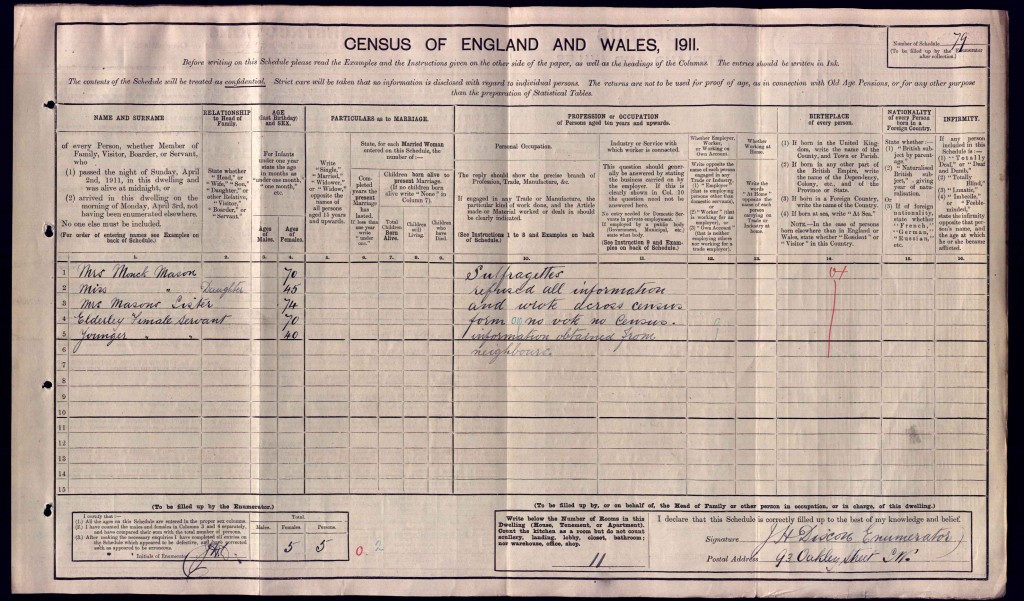 CENSUS OF ENGLAND AND WALES, 1911.
Number of Schedule 79
(To be filled up by the Enumerator after collection.)
Before writing on this Schedule please read the Examples and the Instructions given on the other side of the paper, as well as the headings of the Columns. The entries should be written in Ink.
The contents of the Schedule will be treated as confidential. Strict care will be taken that no information is disclosed with regard to individual persons. The returns are not to be used for proof of age, as in connection with Old Age Pensions, or for any other purpose
than the preparation of Statistical Tables.
NAME AND SURNAME
of every Person, whether Member of
Family, Visitor, Boarder, or Servant,
who
(1) passed the night of Sunday, April
2nd, 1911, in this dwelling and
was alive at midnight, or
(2) arrived in this dwelling on the
morning of Monday, April 3rd, not
having been enumerated elsewhere.
No one else must be included.
(For order of entering names see Examples on
back of Schedule.)
RELATIONSHIP
to Head of
Family.
State whether
"Head," or
"Wife," "Son,"
"Daughter," or
other Relative,
"Visitor,"
"Boarder," or
"Servant."
AGE
(last Birthday)
and SEX.
For Infants
under one year
state the age
in months as
"under one month,"
"one month,"
etc.
Ages of Males.
Ages of Females.
PARTICULARS as to MARRIAGE.
Write
"Single,"
"Married,"
"Widower,"
or "Widow,"
opposite the
names of all
persons aged
15 years
and upwards.
State, for each Married Woman
entered on this Schedule, the
number of:—
Completed years the present Marriage has lasted.
If less than one year write "under one."
Children born alive to
present Marriage.
(If no children born
alive write "None" in
Column 7).
Total Children Born Alive.
Children still Living.
Children who have Died.
PROFESSION or OCCUPATION
of Persons aged ten years and upwards.
Personal Occupation.
The reply should show the precise branch of
Profession, Trade, Manufacture, &c.
If engaged in any Trade or Manufacture, the
particular kind of work done, and the Article
made or Material worked or dealt in should
be clearly indicated.
(See Instructions 1 to 8 and Examples on back
of Schedule.)
Industry or Service with
which worker is connected.
This question should gener-
ally be answered by stating
the business carried on by
the employer. If this is
clearly shown in Col. 10
the question need not be
answered here.
No entry needed for Domestic Ser-
vants in private employment.
If employed by a public body
(Government, Municipal, etc.)
state what body.
(See Instruction 9 and Exam-
ples on back of Schedule.)
Whether Employer,
Worker,
or Working on
Own Account.
Write opposite the
name of each person
engaged in any
Trade or Industry,
(1) "Employer"
(that is employing
persons other than
domestic servants),
or
(2) "Worker" (that
is working for an
employer), or
(3) "Own Account"
(that is neither
employing others
nor working for a
trade employer).
Whether
Working at
Home.
Write the
words
"At Home"
opposite the
name of each
person
carrying on
Trade or
Industry at
Home.
BIRTHPLACE
of every person.
(1) If born in the United King-
dom, write the name of the
County, and Town or Parish.
(2) If born in any other part of
the British Empire, write
the name of the Dependency,
Colony, etc., and of the
Province or State.
(3) If born in a Foreign Country,
write the name of the Country.
(4) If born at sea, write "At Sea."
NOTE.—In the case of persons
born elsewhere than in England or
Wales, state whether "Resident" or
"Visitor" in this Country.
NATIONALITY
of every Person
born in a
Foreign Country.
State whether:—
(1) "British
subject by
parentage,"
(2) "Naturalised
British sub-
ject," giving
year of natu-
ralisation,
or
(3) If of foreign
nationality,
state whether
"French,"
"German,"
"Russian,"
etc.
INFIRMITY.
If any person
included in this
Schedule is:—
(1) "Totally
Deaf," or "Deaf
and Dumb,"
(2) "Totally
Blind,"
(3) "Lunatic,"
(4) "Imbecile,"
or "Feeble-
minded,"
state the infirmity
opposite that per-
son's name, and
the age at which
he or she became
afflicted.
1. 2. 3. 4. 5. 6. 7. 8. 9. 10. 11. 12. 13. 14. 15. 16.
1 Mrs Monck Mason 70 Suffragettes
2 Miss " Daughter 45 refused all information
3 Mrs Masons Sister 74 and wrote across census
4 Elderley Female Servant 70 form no vote no Census.
5 Younger " " 40 information obtained from
6 neighbours.
7
8
9
10
11
12
13
14
15
(To be filled up by the Enumerator.)
I certify that:—
(1.) All the ages on this Schedule are entered in the proper sex columns.
(2.) I have counted the males and females in Columns 3 and 4 separately,
and have compared their sum with the total number of persons.
(3.) After making the necessary enquiries I have completed all entries on
the Schedule which appeared to be defective, and have corrected
such as appeared to be erroneous.
Initials of Enumerator
Total.
Males. Females. Persons.
5 5
0. 2
(To be filled up by, or on behalf of, the Head of Family or other person in occupation, or in charge, of this dwelling.)
Write below the Number of Rooms in this
Dwelling (House, Tenement, or Apartment).
Count the kitchen as a room but do not count
scullery, landing, lobby, closet, bathroom;
nor warehouse, office, shop.
11
I declare that this Schedule is correctly filled up to the best of my knowledge and belief.
Signature J H Enumerator
Postal Address 93 Oakley Street